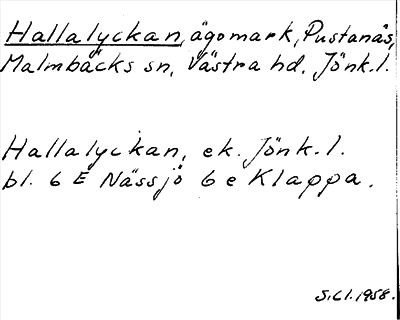 Hallalyckan, ägomark, Pustanäs,
Malmbäcks sn, Västra hd. Jönk.l.
Hallalyckan, ek. Jönk.l.
bl. 6 E Nässjö 6 e Klappa.
S.Cl. 1958.